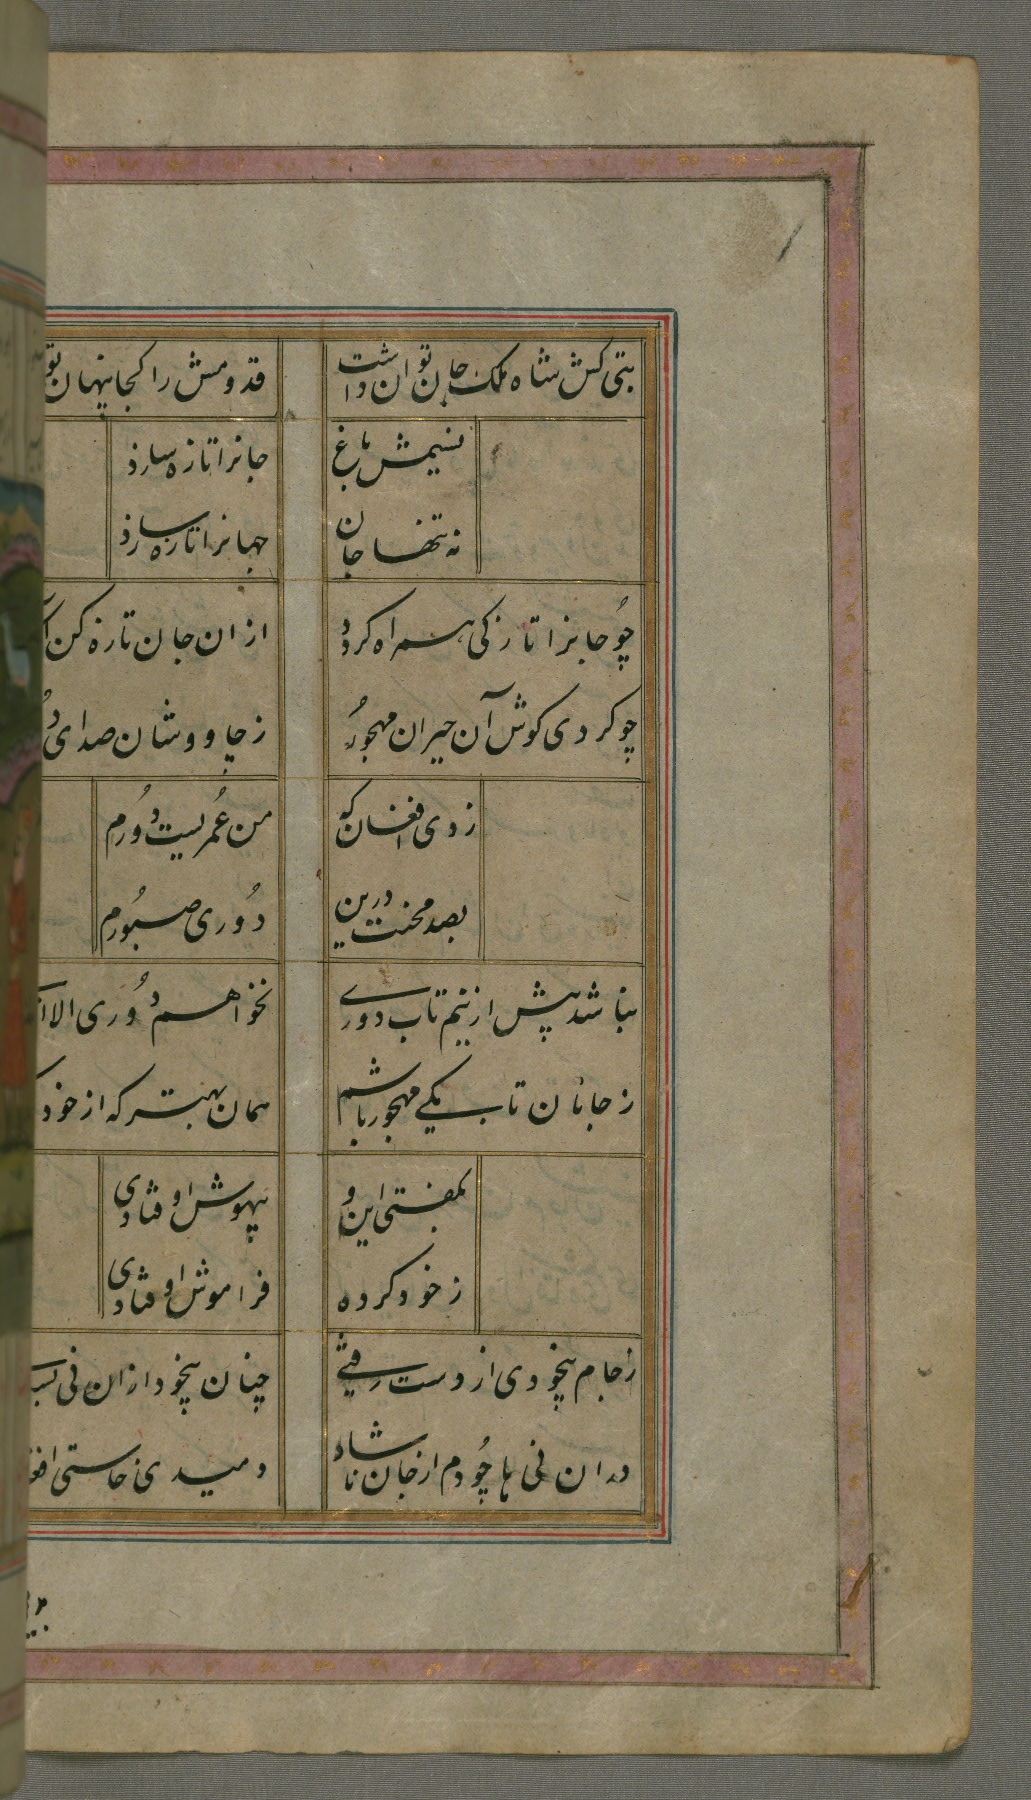 بتی کش شاه ملک جان توان داشت قدومش را کجا پنهان تو
نسیمش باغ جانرا تازه سازد
نه تنها جان جهانرا تازه سازد
چو جانرا تازکی همراه کردی از ان جان تازه کن
چو کردی کوش آن حیران مهجور ز چاووشان صدای دُ
زدی افغان که من عمریست دورم
بصد محنت درین دوری صبورم
نباشد پیش ازینم تاب دوری نخواهم دوری الا
ز جانان تا بکی مهجور باشم همان بهتر که از خود
بکفتی این و بیهوش اوفتادی
ز خود کرده فراموش اوفتادی
ز جام بیخودی از دست رفتی چنان بیخود ازان فی
دران نی ها چو دم از جان ناشاد دمیدی خاستی